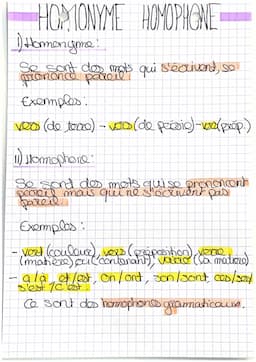 HOMONYME HOMOPHONE
I) Homonyme :
Se sont des mots qui s'écrivent, se
prononce pareil
Exemples :
vers (de terre) - vers (de poésie) - vers (prép.)
II) Homophone :
Se sont des mots qui se prononcent
pareil mais qui ne s'écrivent pas
pareil
Exemples :
- vert (couleur), vers (préposition), verre
(matière) ou (contenant), (la matière)
- a/à et/est, on/ont, son/sont, ces/ses/
s'est/c'est
Ce sont des homophones grammaticaux.